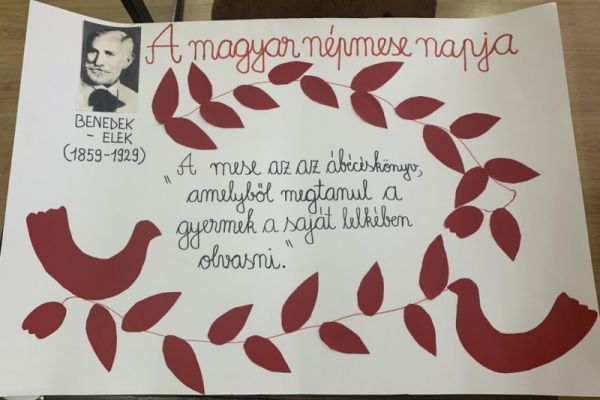 A magyar népmese napja
BENEDEK
- ELEK
(1859-1929)
"A mese az az ábécéskönyv,
amelyből megtanul a
gyermek a saját lelkében
olvasni."